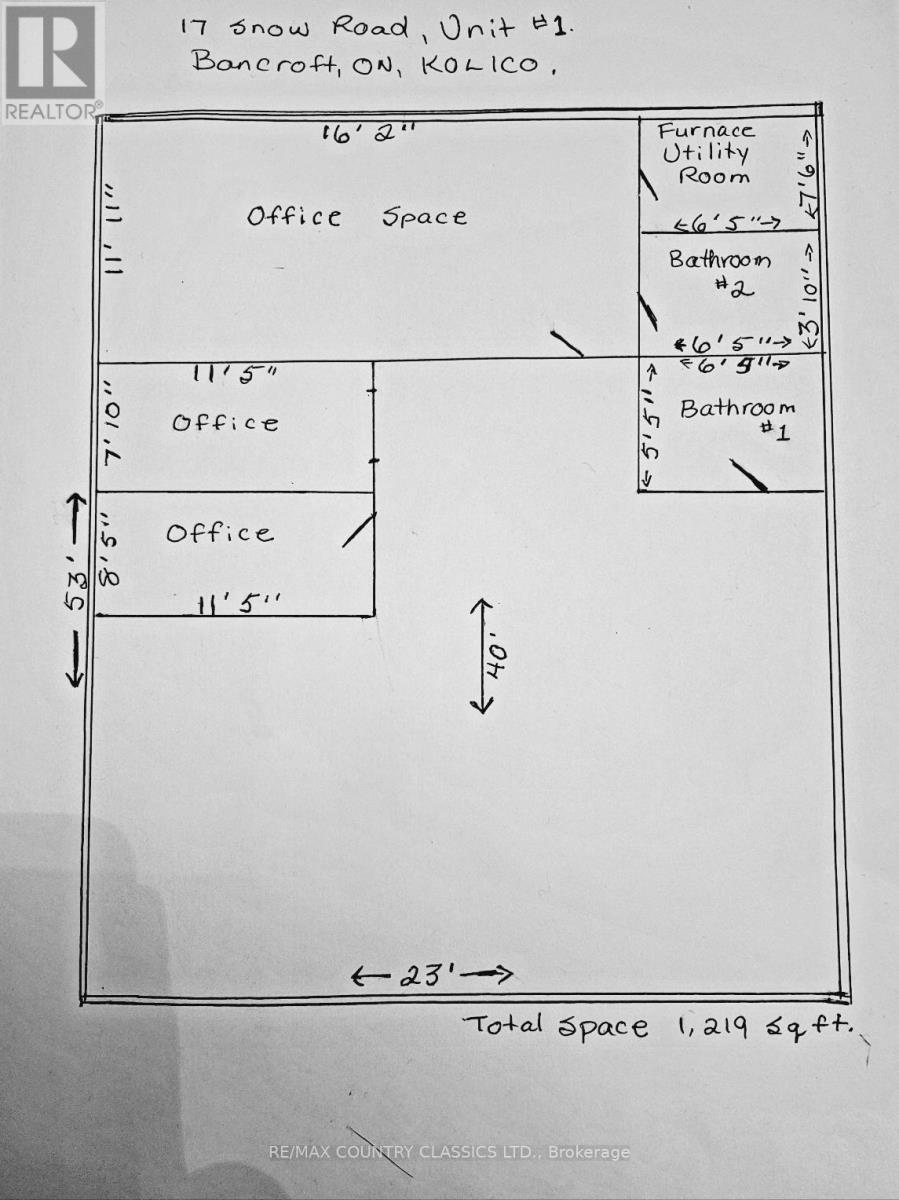 17 Snow Road, Unit #1.
Bancroft, ON, KOLICO.
R
REALTOR®
16' 2"
Furnace
Utility
Room
7'6"
11' 11"
Office Space
6' 5"
Bathroom
#2
3' 10"
6' 5"
6' 5"
11' 5"
7' 10"
Office
5' 5"
Bathroom
#1
8' 5"
Office
53'
11' 5"
40'
23'
Total Space 1,219 sq ft.
RE/MAX COUNTRY CLASSICS LTD., Brokerage